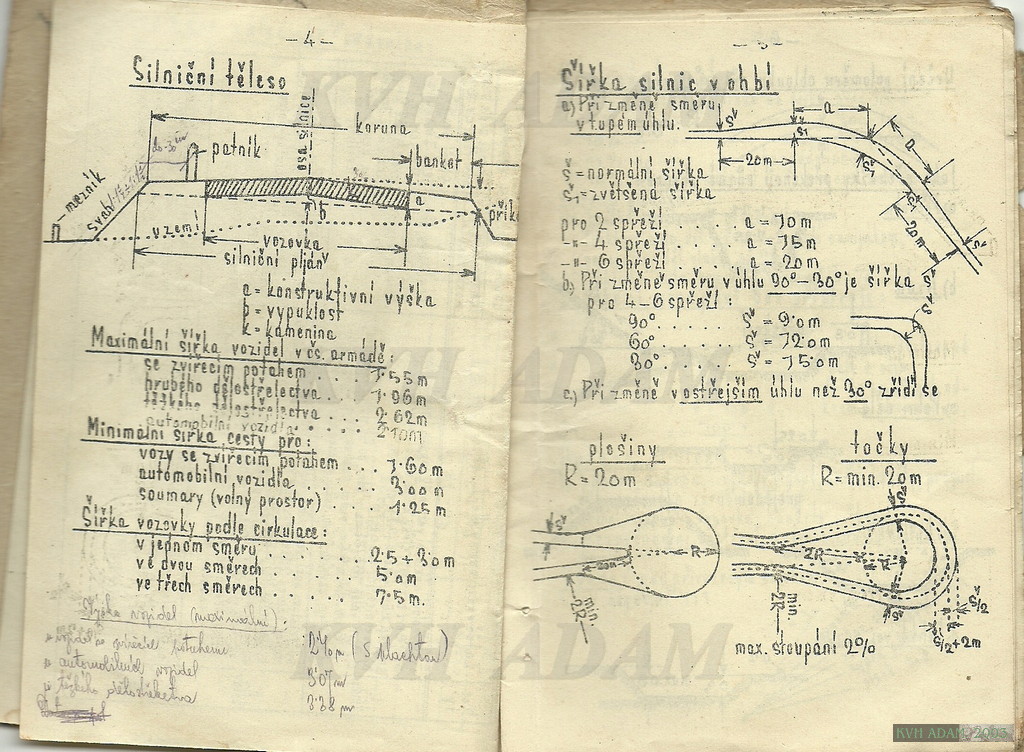 - 4 -
Silniční těleso
koruna
osa silnice
patník
banket
mezník
svah
území
a
b
vozovka
silniční pláň
a = konstruktivní výška
b = vypuklost
k = kamenina
Maximální šířka vozidel v čs. armádě:
se zvířecím potahem . . . . 1·55 m
hrubého dělostřelectva . . . 1·96 m
těžkého dělostřelectva . . . 2·62 m
automobilní vozidla . . . . 2·10 m
Minimální šířka cesty pro:
vozy se zvířecím potahem . . . 1·60 m
automobilní vozidla . . . . . 3·00 m
soumary (volný prostor) . . . 1·25 m
Šířka vozovky podle cirkulace:
v jednom směru . . . . . 2·5 + 3·0 m
ve dvou směrech . . . . . 5·0 m
ve třech směrech . . . . . 7·5 m.
(maximální):
2·40 m
automobilních vozidel 3·07 m
těžkého dělostřelectva 3·38 m
Šířka silnic v ohbí
a.) Při změně směru
v tupém úhlu.
š
š₁
a
20 m
a
š₁
20 m
š
š = normální šířka
š₁ = zvětšená šířka
pro 2 spřeží . . . . . a = 10 m
-"- 4 spřeží . . . . . a = 15 m
-"- 6 spřeží . . . . . a = 20 m
b.) Při změně směru v úhlu 90° – 30° je šířka š
pro 4 – 6 spřeží :
90° . . . . . . š = 9·0 m
60° . . . . . . š = 12·0 m
30° . . . . . . š = 15·0 m
š
c.) Při změně v ostřejším úhlu než 30° zřídí se
plošiny
točky
R = 20 m
R = min. 20 m
š
20 m
R
min. 2R
š
2R
R
š
min. 2R
š/2
š/2 + 2m
max. stoupání 2%
KVH ADAM
KVH ADAM
KVH ADAM
KVH ADAM 2005